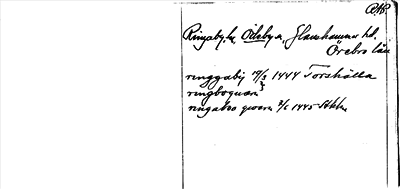 Ringaby, by, Ödeby sn, Glanshammar hd.
Örebro län
ringgaby 17/3 1444 Torshälla
ringboquarn
ringaboo quarn 2/5 1445 Sthlm